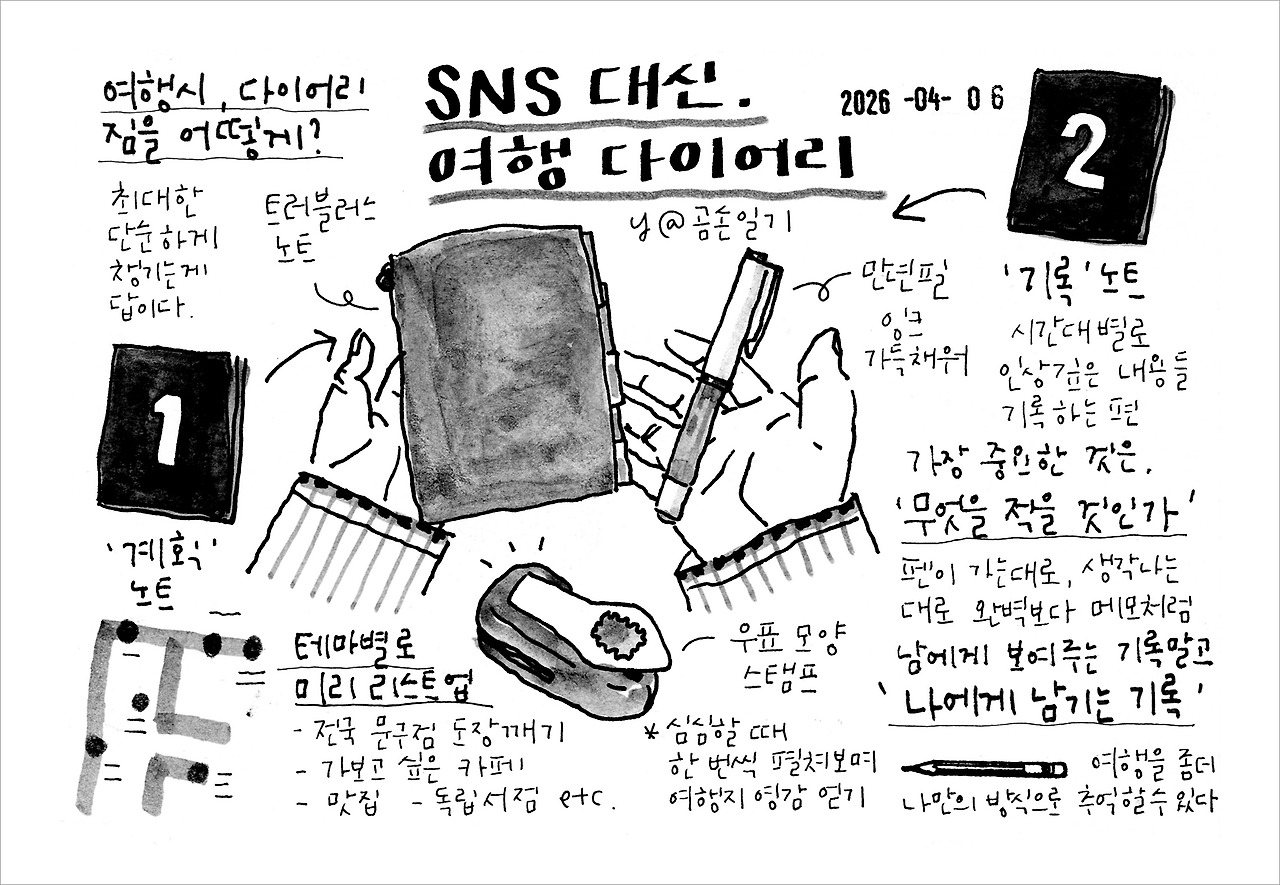 SNS 대신.
여행 다이어리
y@곰손일기
2026 -04- 06
여행시, 다이어리
짐을 어떻게?
최대한
단순하게
챙기는게
답이다.
트러블러스
노트
1
'계획'
노트
테마별로
미리 리스트업
- 전국 문구점 도장깨기
- 가보고 싶은 카페
- 맛집 - 독립서점 etc.
만년필
잉크
가득채워
우표 모양
스탬프
* 심심할 때
한 번씩 펼쳐보며
여행지 영감 얻기
2
'기록' 노트
시간대별로
인상깊은 내용들
기록하는 편
가장 중요한 것은,
'무엇을 적을 것인가'
펜이 가는대로, 생각나는
대로 완벽보다 메모처럼
남에게 보여주는 기록말고
'나에게 남기는 기록'
여행을 좀더
나만의 방식으로 추억할 수 있다